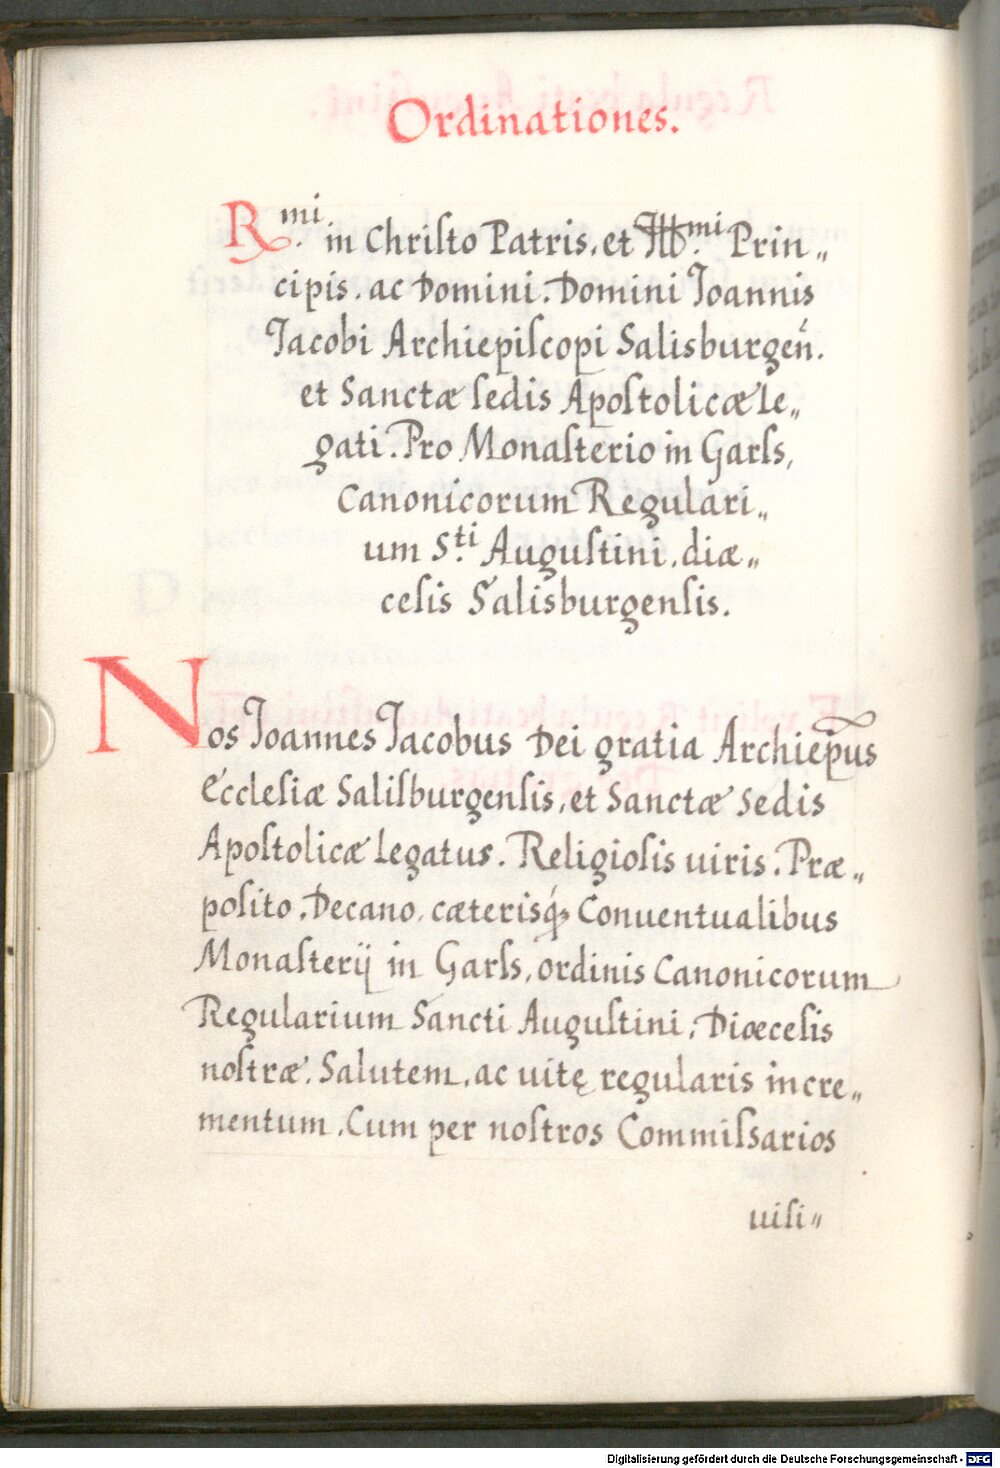 Ordinationes.
R.mi in Chriſto Patris, et Ill.mi Prin„
cipis, ac Domini. Domini Ioannis
Iacobi Archiepiſcopi Salisburgeń.
et Sanctæ ſedis Apoſtolicæ Le„
gati. Pro Monaſterio in Garſs,
Canonicorum Regulari„
um S.ti Auguſtini, diæ„
ceſis Salisburgenſis.
Nos Ioannes Iacobus Dei gratia Archiep̃us
Eccleſiæ Saliſburgenſis, et Sanctæ Sedis
Apoſtolicæ Legatus. Religioſis uiris. Præ„
poſito, Decano, cæterisq́ꝫ Conuentualibus
Monaſterij in Garſs, ordinis Canonicorum
Regularium Sancti Auguſtini, Diœceſis
noſtræ. Salutem, ac uitę regularis incre„
mentum. Cum per noſtros Commiſsarios
uiſi„
Digitalisierung gefördert durch die Deutsche Forschungsgemeinschaft - DFG